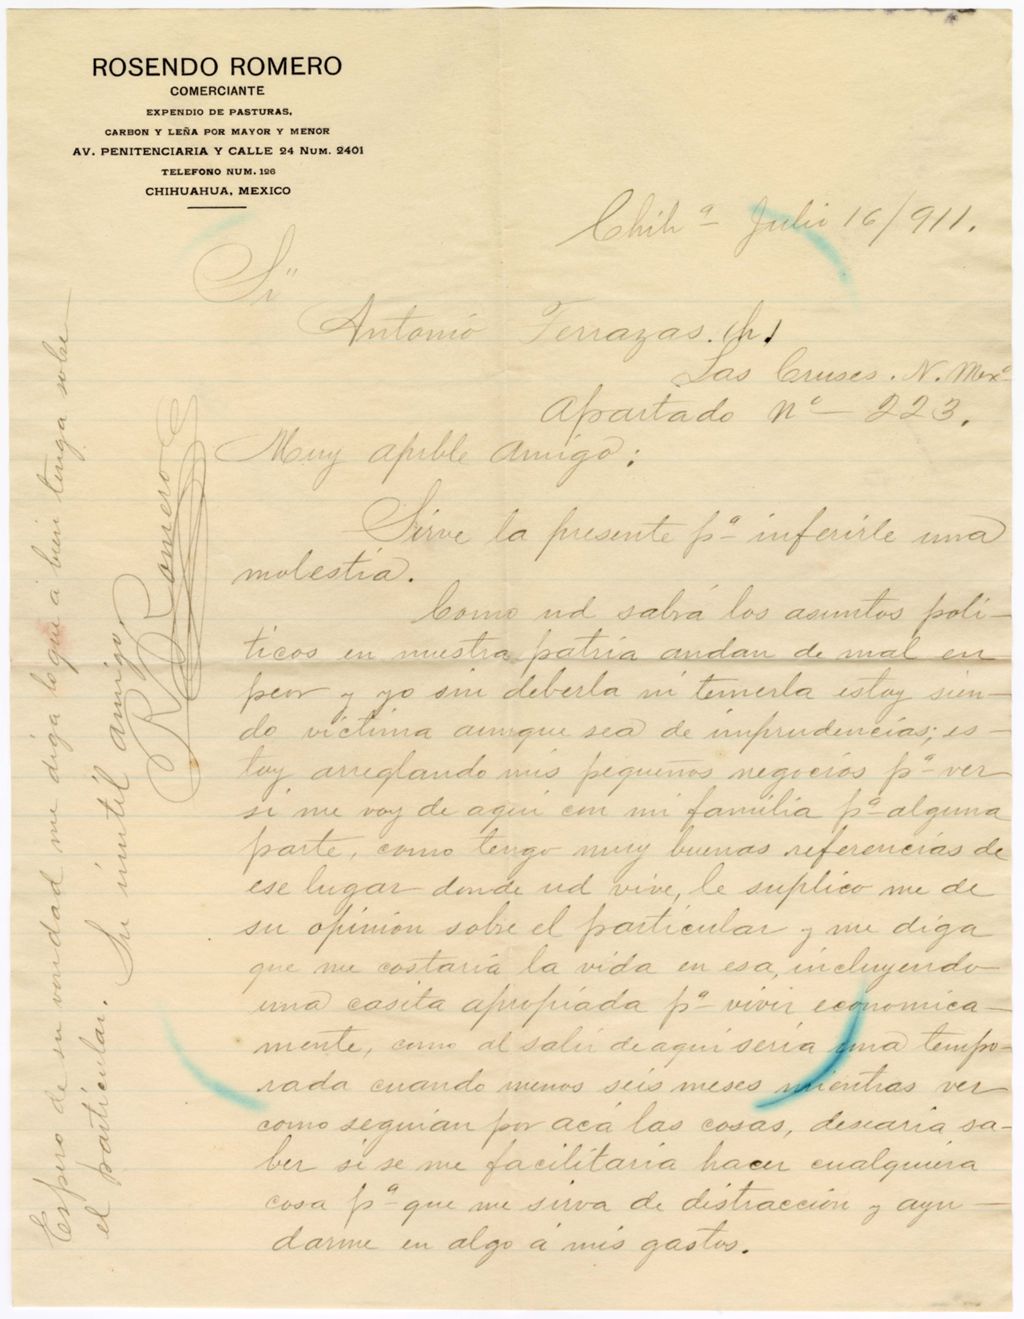 ROSENDO ROMERO
COMERCIANTE
EXPENDIO DE PASTURAS,
CARBON Y LEÑA POR MAYOR Y MENOR
AV. PENITENCIARIA Y CALLE 24 NUM. 2401
TELEFONO NUM. 126
CHIHUAHUA, MEXICO
Chihª Julio 16/911.
Sr
Antonio Terrazas. (h)
Las Cruses. N. Mexº
Apartado Nº 223.
Muy apible amigo:
Sirve la presente pª inferirle una
molestia.
Como ud sabrá los asuntos poli-
ticos en nuestra patria andan de mal en
peor y yo sin deberla ni temerla estoy sien-
do victima aunque sea de imprudencias; es-
toy arreglando mis pequeños negocios pª ver
si me voy de aqui con mi familia pª alguna
parte, como tengo muy buenas referencias de
ese lugar donde ud vive, le suplico me de
su opinion sobre el particular y me diga
que me costaria la vida en esa, incluyendo
una casita apropiada pª vivir economica-
mente, como al salir de aqui seria una tempo-
rada cuando menos seis meses mientras ver
como seguian por acá las cosas, desearia sa-
ber si se me facilitaria hacer cualquiera
cosa pª que me sirva de distracción y ayu-
darme en algo á mis gastos.
Espero de su vondad me diga lo que á bien tenga sobre
el particular. Su inutil amigo.
R Romero